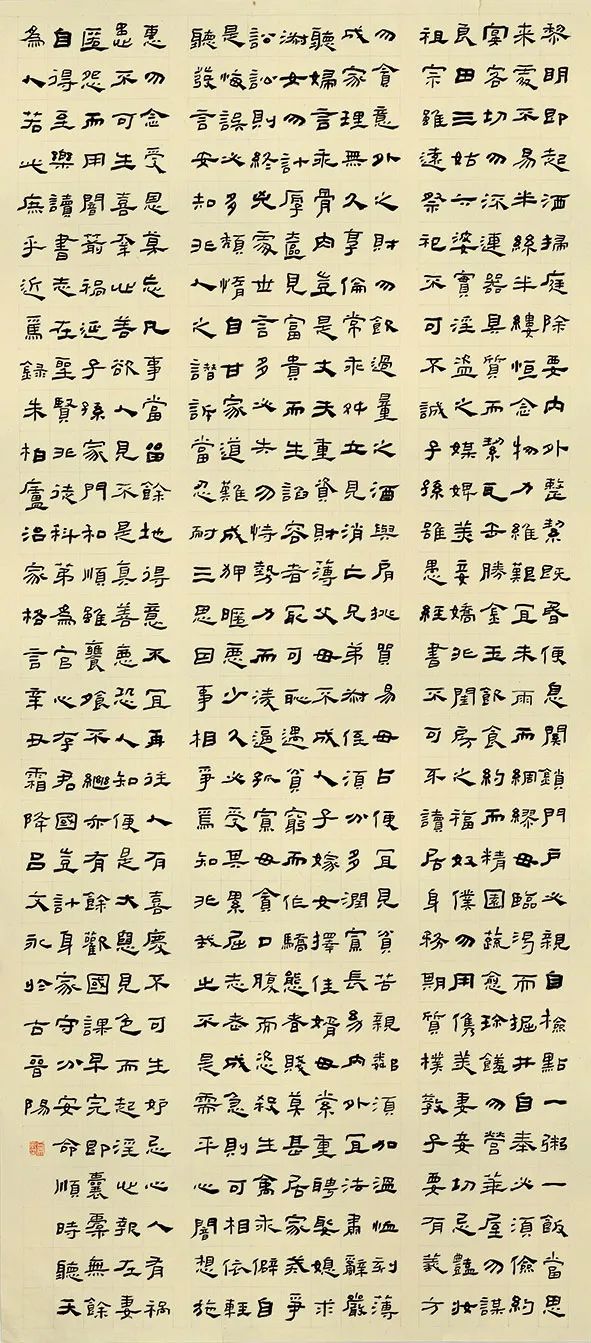 黎明即起洒掃庭除要內外整絜既昏便息關鎖門戶必親自檢點一粥一飯當思
来處不易半絲半縷恒念物力維艱宜未雨而綢繆毋臨渴而掘井自奉必須儉約
宴客切勿流連器具質而絜瓦缶勝金玉飲食約而精園蔬愈珍饈勿營華屋勿謀
良田三姑六婆實淫盜之媒婢美妾嬌非閨房之福奴僕勿用儁美妻妾切忌豔妝
祖宗雖遠祭祀不可不誠子孫雖愚經書不可不讀居身務期質樸教子要有義方
勿貪意外之財勿飲過量之酒與肩挑貿易毋占便宜見貧苦親鄰須加温恤刻薄
成家理無久享倫常乖舛立見消亡兄弟叔侄須分多潤寡長幼內外宜法肅辭嚴
聽婦言乖骨肉豈是丈夫重資財薄父母不成人子嫁女擇佳婿毋索重聘娶媳求
淑女勿計厚奩見富貴而生諂容者最可恥遇貧窮而作驕態者賤莫甚居家戒爭
訟訟則終兇處世言多必失勿恃勢力而淩逼孤寡毋貪口腹而恣殺生禽乖僻自
是悔誤必多頹惰自甘家道難成狎暱惡少久必受其累屈志老成急則可相依輕
聽發言安知非人之譖訴當忍耐三思因事相爭焉知非我之不是需平心闇想施
惠勿念受恩莫忘凡事當留餘地得意不宜再往人有喜慶不可生妒忌心人有禍
患不可生喜幸此善欲人見不是真善惡恐人知便是大惡見色而起淫心報在妻
匿怨而用闇箭禍延子孫家門和順雖饔飧不繼亦有餘歡國課早完即囊橐無餘
自得至樂讀書志在聖賢非徒科第為官心存君國豈計身家守分安命順時聽天
為人若此庶乎近焉錄朱柏廬治家格言辛丑霜降呂文永於古晉陽